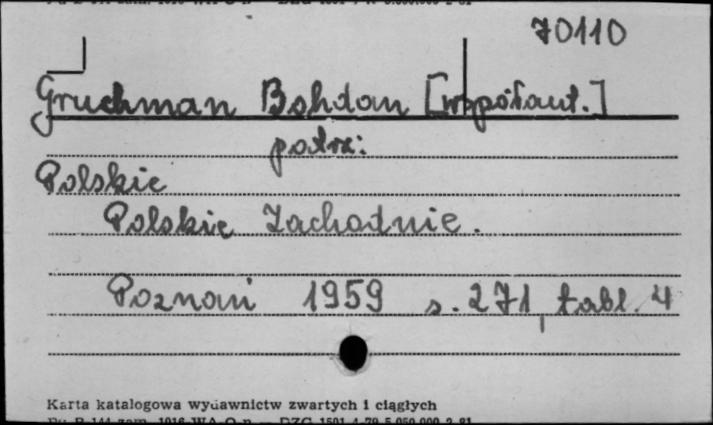 70110
Gruchman Bohdan [współaut.]
patrz:
Polskie
Polskie Zachodnie.
Poznań 1959 s. 271, tabl. 4
Karta katalogowa wydawnictw zwartych i ciągłych